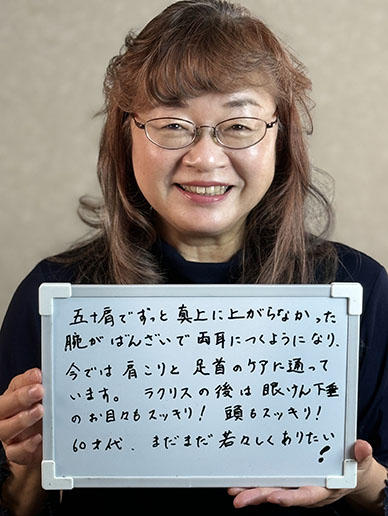 五十肩でずっと真上に上がらなかった
腕がばんざいで両耳につくようになり、
今では肩こりと足首のケアに通って
います。ラクリスの後は眼けん下垂
のお目々もスッキリ！頭もスッキリ！
60才代、まだまだ若々しくありたい！